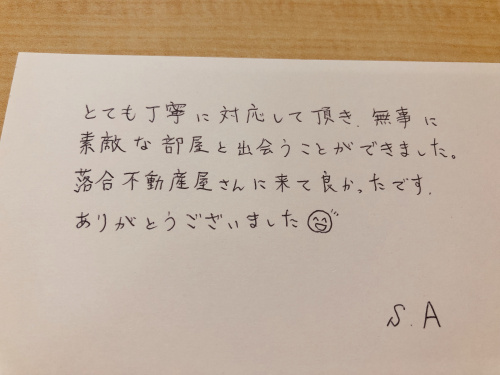 とても丁寧に対応して頂き、無事に
素敵な部屋と出会うことができました。
落合不動産屋さんに来て良かったです.
ありがとうございました
S.A